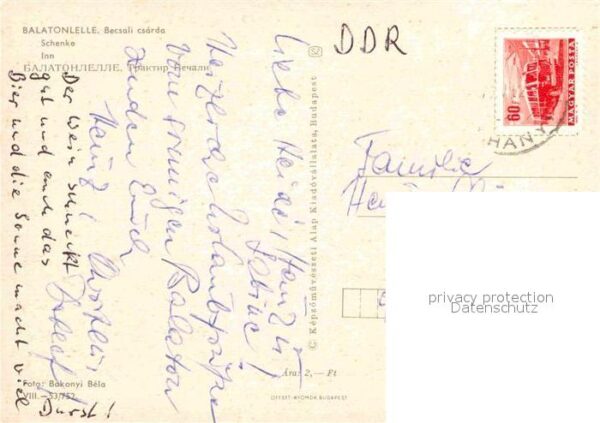 BALATONLELLE. Becsali csárda
Schenke
Inn
БАЛАТОНЛЕЛЛЕ. Трактир Бечали
DDR
60f
MAGYAR POSTA
HANY
Liebe Heidi, Heinz u.
Sabine!
Herzliche Urlaubsgrüße
vom sonnigen Balaton
senden Euch
Heinz
Der Wein schmeckt
gut und auch das
Bier und die Sonne macht viel
Durst!
Familie
© Képzőművészeti Alap Kiadóvállalata, Budapest
Ára: 2,— Ft
Foto: Bakonyi Béla
VIII.—53/752
OFFSET-NYOMDA BUDAPEST
privacy protection
Datenschutz